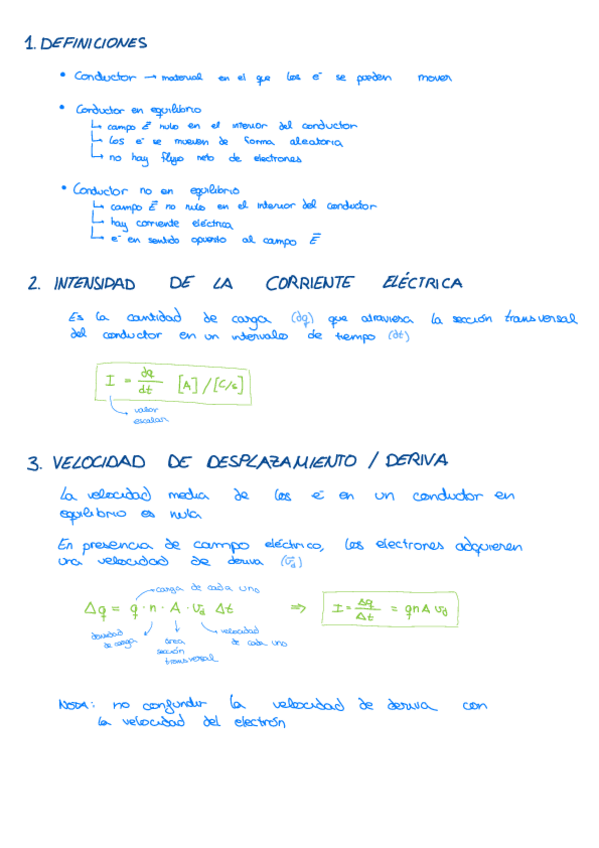 1. DEFINICIONES
• Conductor → material en el que los e⁻ se pueden mover
• Conductor en equilibrio
↳ campo E⃗ nulo en el interior del conductor
↳ los e⁻ se mueven de forma aleatoria
↳ no hay flujo neto de electrones
• Conductor no en equilibrio
↳ campo E⃗ no nulo en el interior del conductor
↳ hay corriente eléctrica
↳ e⁻ en sentido opuesto al campo E⃗
2. INTENSIDAD DE LA CORRIENTE ELÉCTRICA
Es la cantidad de carga (dq) que atraviesa la sección transversal
del conductor en un intervalos de tiempo (dt)
I = dq/dt [A]/[C/s]
valor
escalar
3. VELOCIDAD DE DESPLAZAMIENTO / DERIVA
La velocidad media de los e⁻ en un conductor en
equilibrio es nula
En presencia de campo eléctrico, los electrones adquieren
una velocidad de deriva (v⃗d)
carga de cada uno
Δq = q · n · A · vd Δt ⇒ I = Δq/Δt = qnAvd
densidad de carga
área sección transversal
velocidad de cada uno
NOTA: no confundir la velocidad de deriva con
la velocidad del electrón